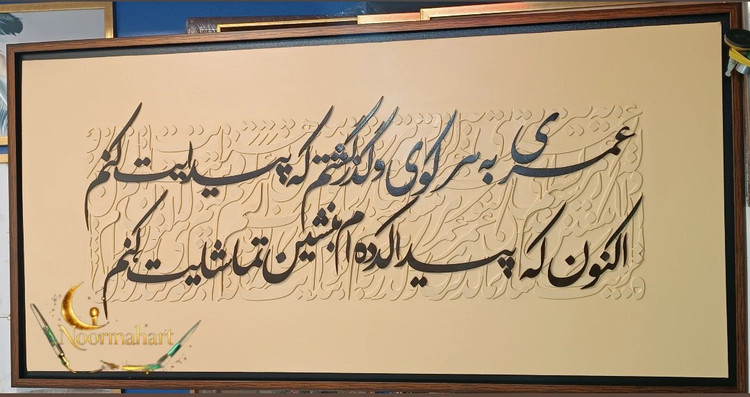 عمری به هر کوی و گذر گشتم که پیدایت کنم
اکنون که پیدا کرده ام بنشین تماشایت کنم
Noormahart